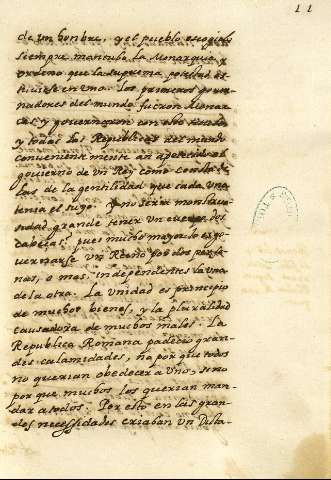 11
de un hombre, y el pueblo escogido
siempre mantubo la Monarquia y
ordeno que la suprema potestad es-
tubiese en uno. Los primeros gover-
nadores del mundo fueron Monar-
cas, y governaron con este titulo
y todas las Republicas del mundo
conveniente mente an apetecido el
govierno de un Rey como
de la gentilidad que cada una
tenia el suyo. Y no seria monstruo-
sidad grande tener un cuerpo dos
cabezas, pues mucho mayor lo es go-
vernarse un Reino por dos perso-
nas, o mas, independentes la una
de la otra. La unidad es principio
de muchos bienes, y la pluralidad
causadora de muchos males. La
Republica Romana padecio gran-
des calamidades, no por que todos
no querian obedecer a uno, sino
por que muchos los querian man-
dar a todos. Por esto en las gran-
des necessidades criaban un Dicta-